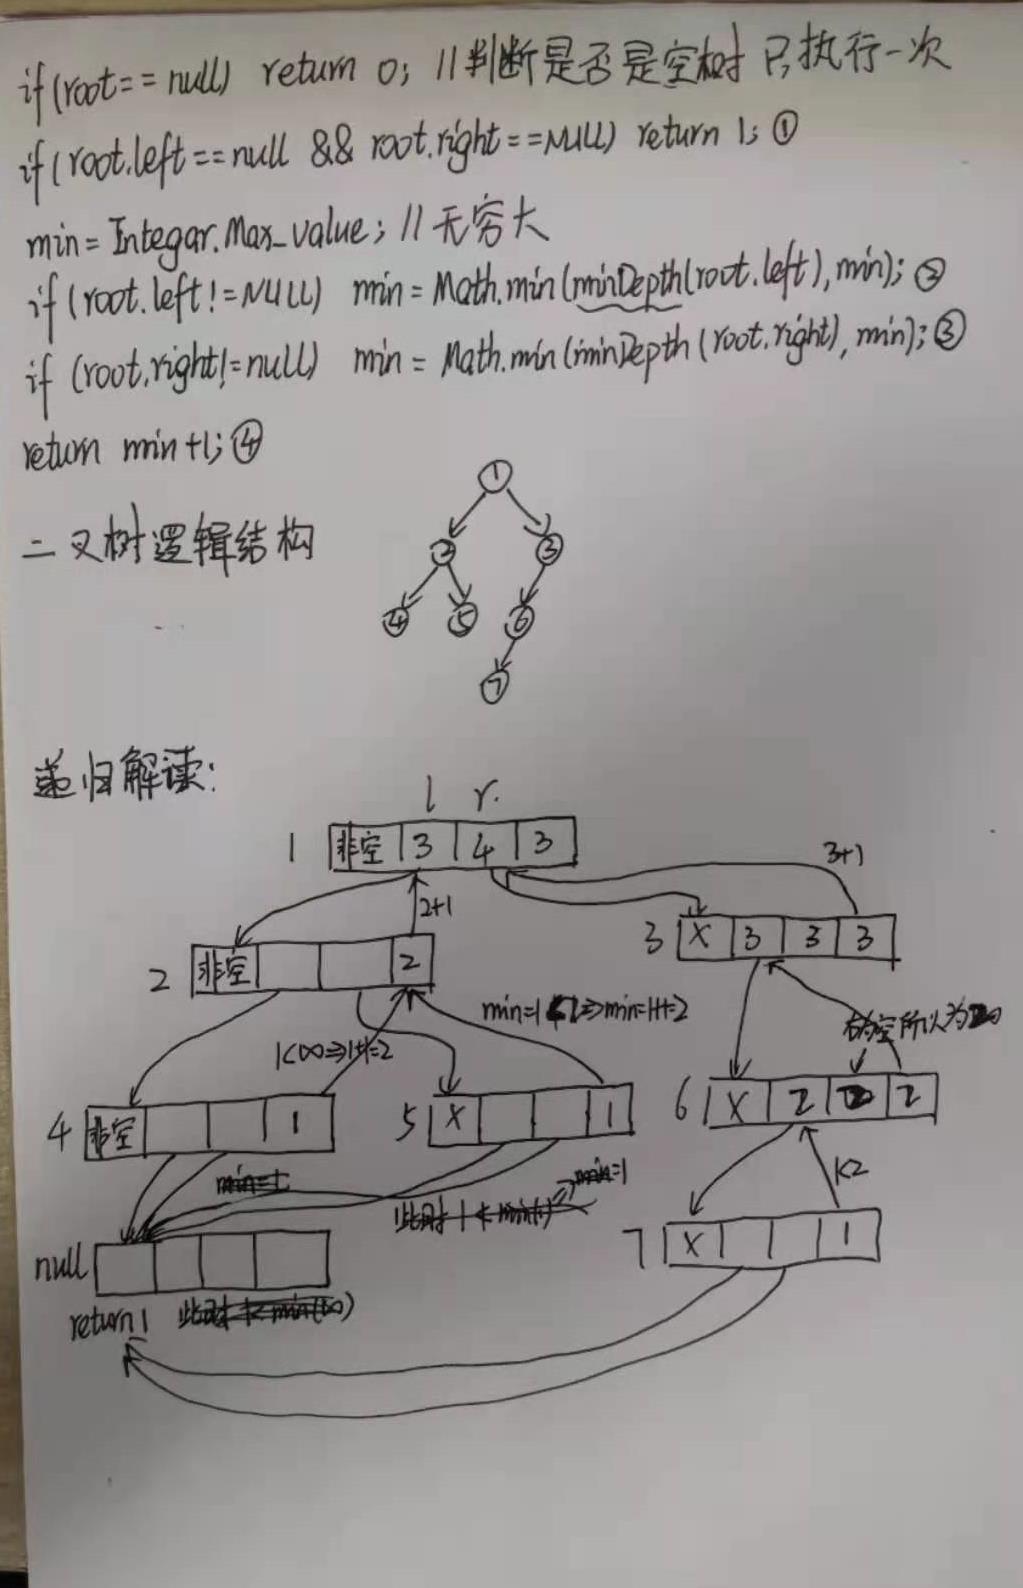 if(root==null) return 0; //判断是否是空树 只执行一次
if(root.left==null && root.right==NULL) return 1; ①
min=Integar.Max_value; //无穷大
if(root.left!=NULL) min=Math.min(minDepth(root.left),min); ②
if (root.right!=null) min = Math.min(minDepth(root.right),min); ③
return min+1; ④
二叉树逻辑结构
①
② ③
④ ⑤ ⑥
⑦
递归解读:
l r.
1 非空 3 4 3
3+1
2+1
3 X 3 3 3
2 非空 2
min=1 <2=>min=1+1=2
右为空所以为
1<∞=>1+1=2
4 非空 1
5 X 1
6 X 2 2
min=1
min=1
1<2
7 X 1
null
return 1